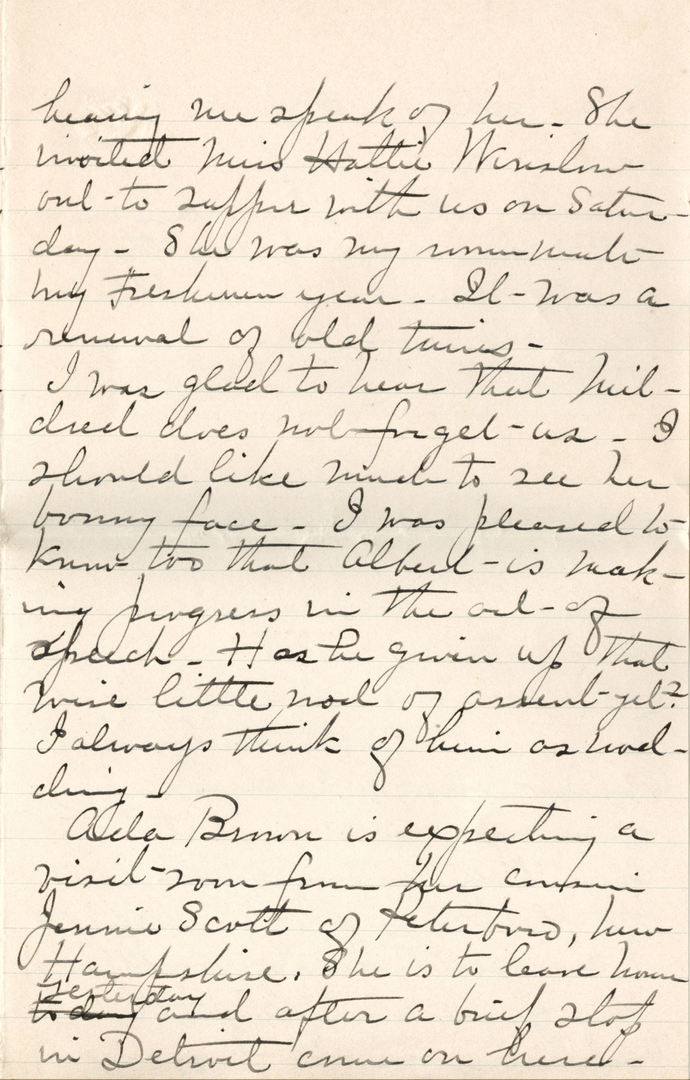 hearing me speak of her - She
invited Miss Hattie Winslow
out to supper with us on Satur-
day - She was my roommate
my Freshman year - It was a
renewal of old times -
I was glad to hear that Mil-
dred does not forget us - I
should like much to see her
bonny face - I was pleased to
know too that Albert is mak-
ing progress in the art of
speech - Has he given up that
wise little nod of assent yet?
I always think of him as nod-
ding -
Ada Brown is expecting a
visit soon from her cousin
Jennie Scott of Peterboro, New
Hampshire. She is to leave home
yesterday
today and after a brief stop
in Detroit come on here -